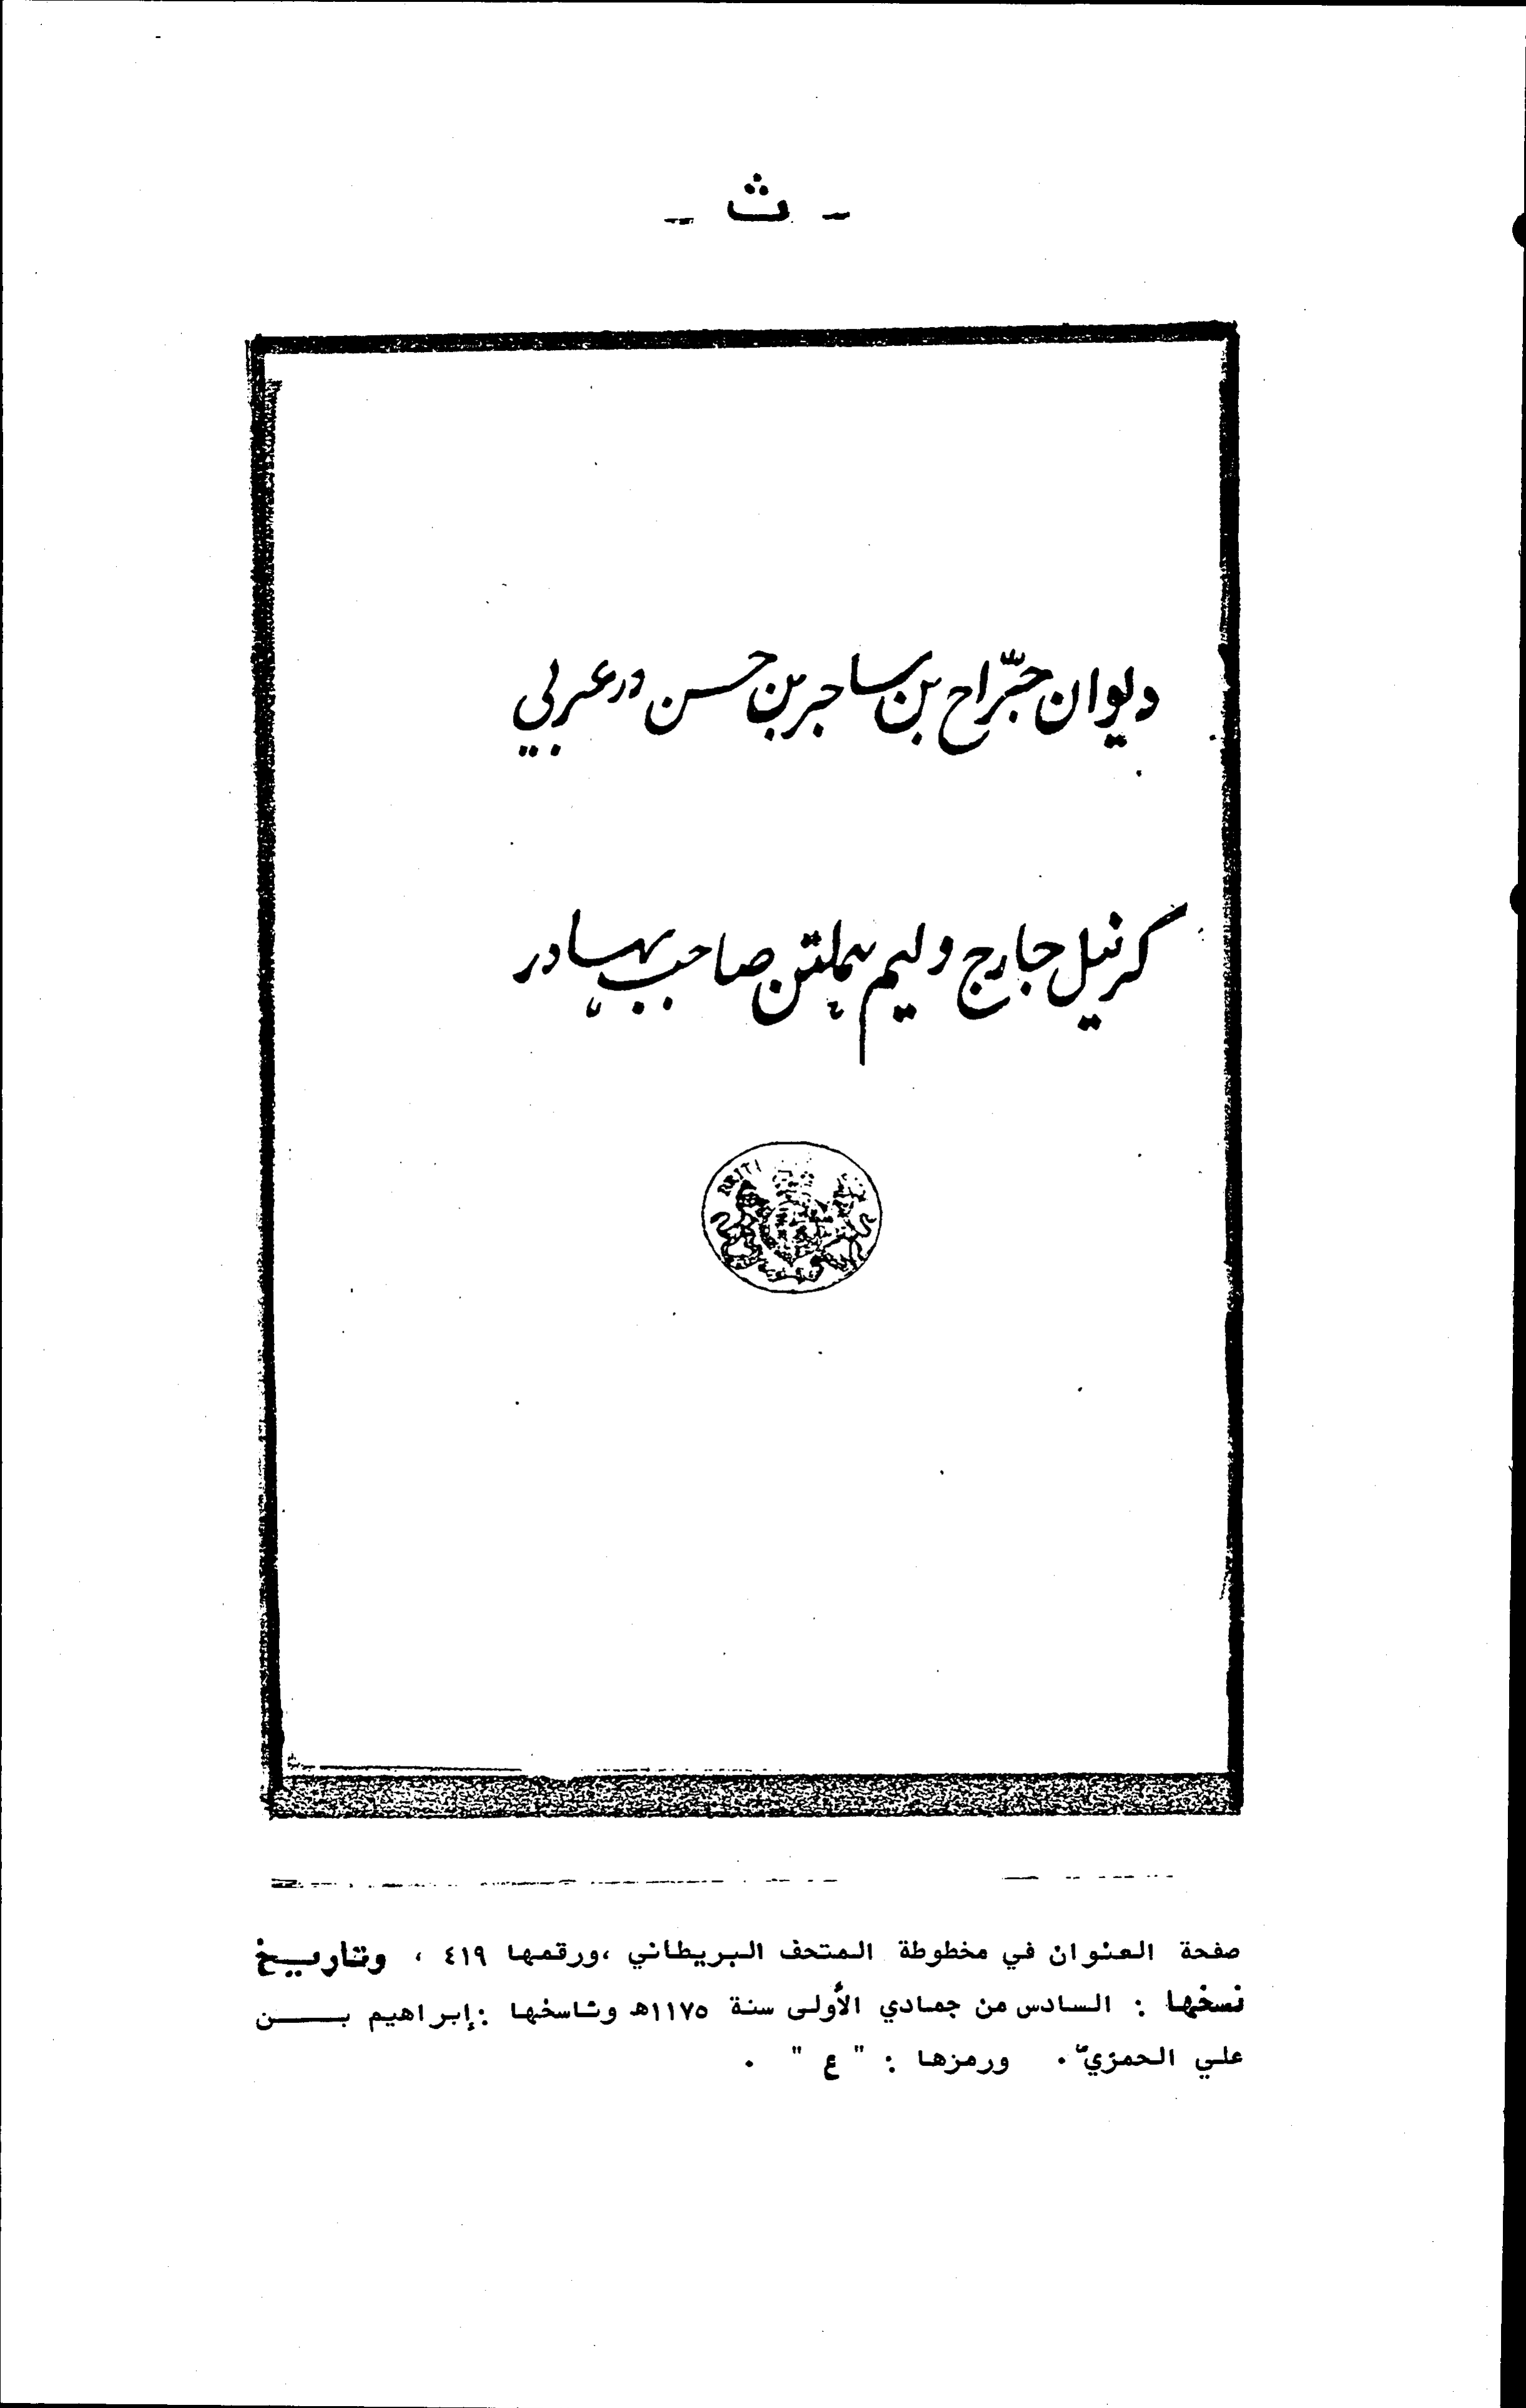 - ث -
ديوان جرّاح بن ساجر بن حسن در عربي
كرنيل جارج وليم هملتن صاحب بهادر
BRITI
صفحة العنوان في مخطوطة المتحف البريطاني ،ورقمها ٤١٩ ، وتاريخ
نسخها : السادس من جمادي الأولى سنة ١١٧٥هـ وناسخها :إبراهيم بن
علي الحمزيّ . ورمزها : " ع " .